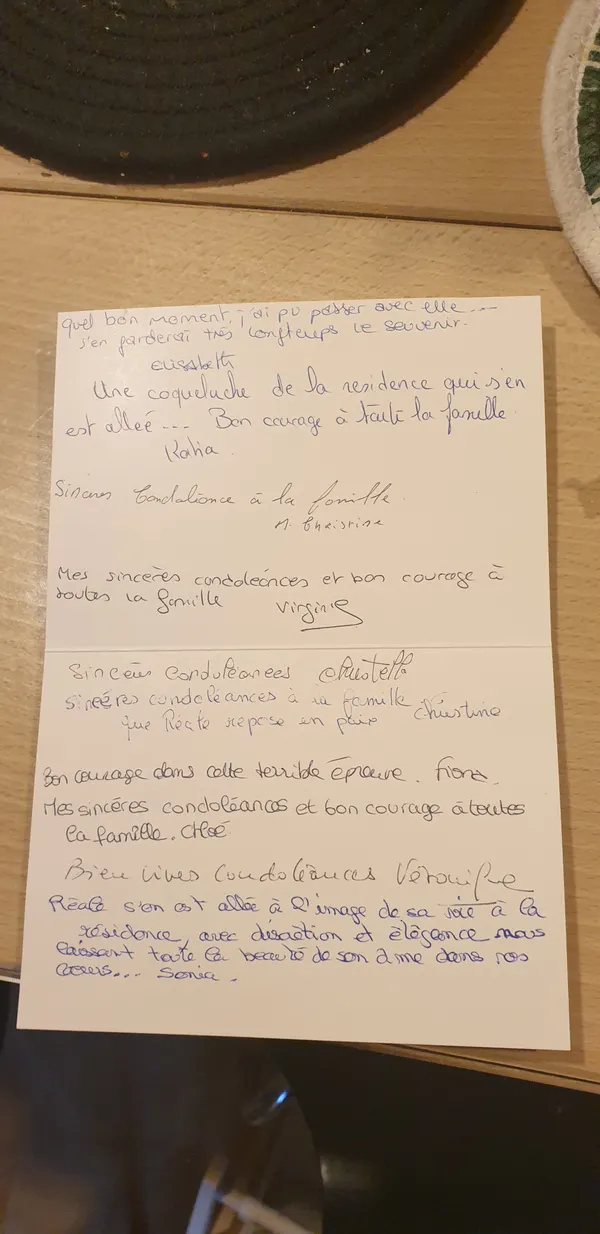 Quel bon moment, j'ai pu passer avec elle...
j'en garderai très longtemps le souvenir.
Elisabeth
Une coqueluche de la residence qui s'en
est alleé --- Bon courage à toute la famille.
Katia.
Sincères Condaléance à la famille.
M. Christine
Mes sincères condoleánces et bon courage à
toutes la famille Virginie
Sincères Conduléances Christelle
sincères condoléances à la famille
que Réate repose en paix Christine
Bon courage dans cette terrible épreuve. Fiona.
Mes sincéres condoléances et bon courage à toutes
la famille. Chloé
Bien vives condoléances Véronique
Réate s'en est allée à l'image de sa vie à la
résidence, avec discrétion et élégance nous
laissant toute la beauté de son âme dans nos
coeurs... Sonia.